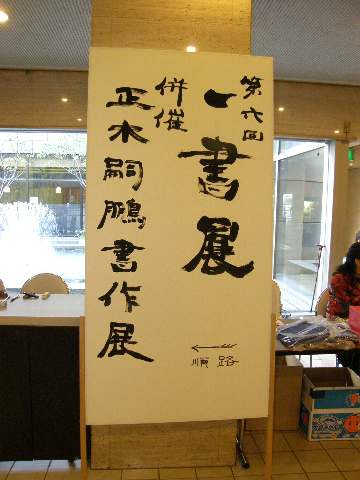 第六回
一書展
併催
正木嗣鵬書作展
←
順路